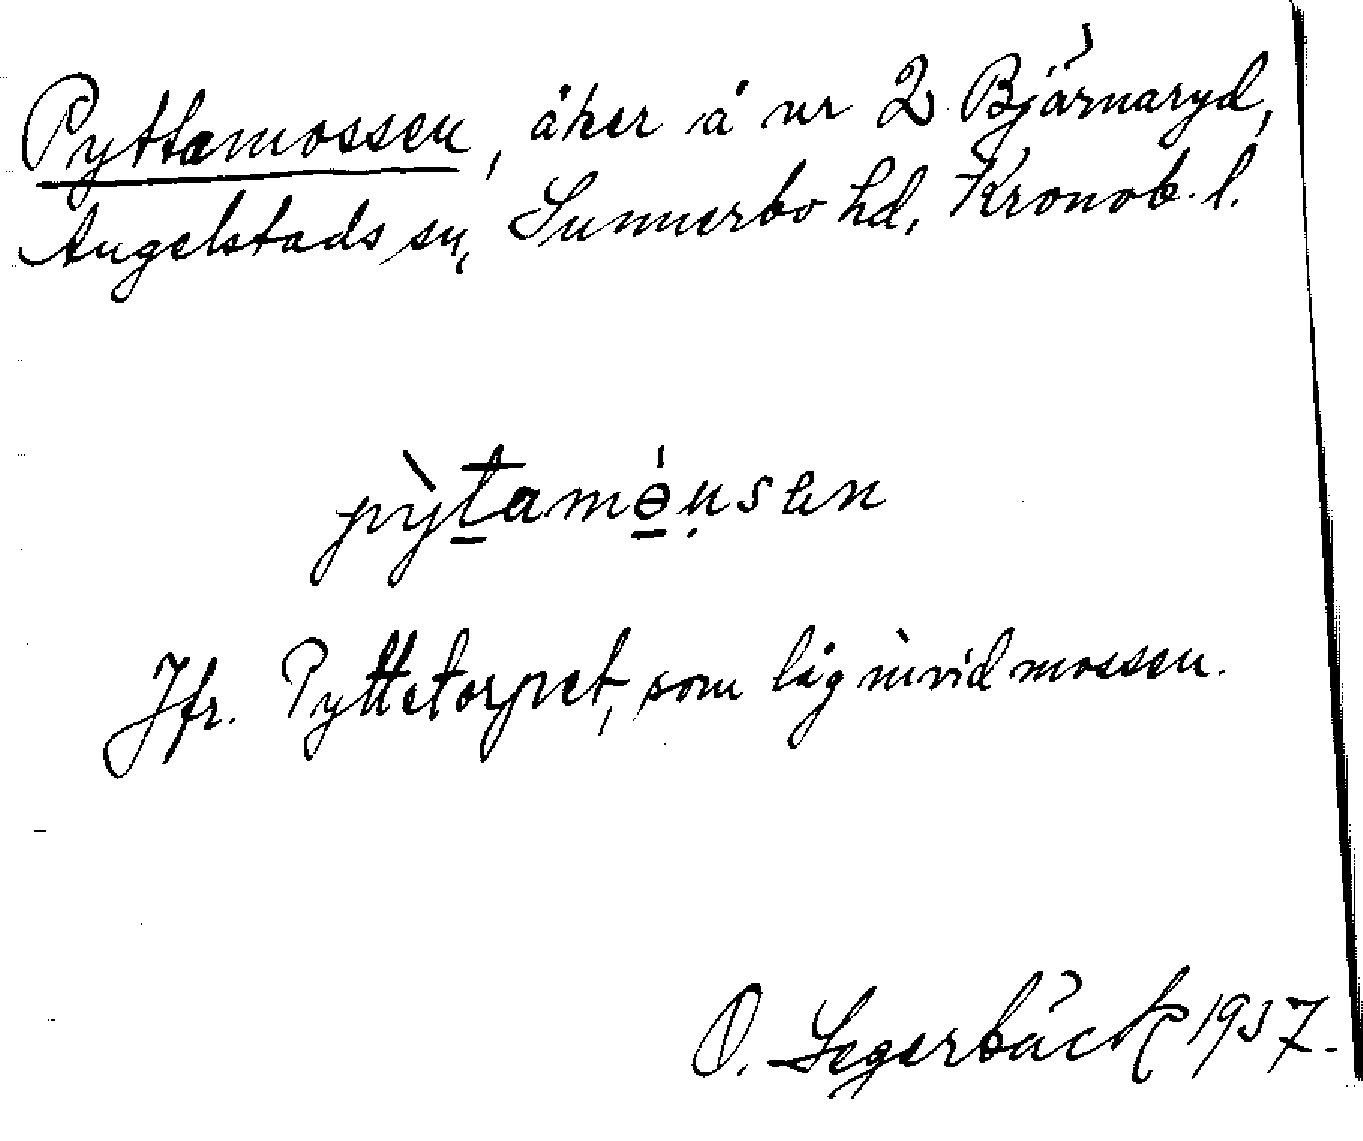 Pyttamossen, åker å nr 2 Bjärnaryd,
Angelstads sn, Sunnerbo hd, Kronob. l.
pỳtamө́u̥sen
Jfr. Pyttetorpet, som låg invid mossen.
O. Segerbäck 1937.